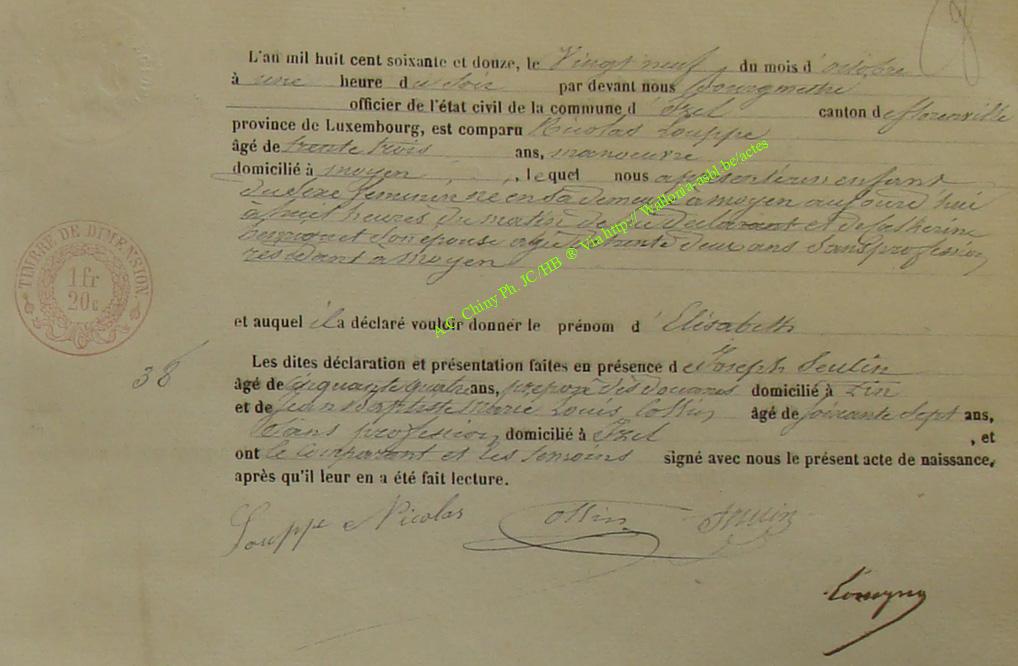 L'an mil huit cent soixante et douze, le Vingt neuf du mois d'octobre
à une heure du soir par devant nous bourgmestre
officier de l'état civil de la commune d'Izel canton de florenville
province de Luxembourg, est comparu Nicolas Louppe
âgé de trente trois ans, manoeuvre
domicilié à moyen, lequel nous a présenté un enfant
du sexe féminin né en sa demeure à moyen aujourd'hui
à huit heures du matin de lui déclarant et de Catherine
son épouse agée de trente deux ans Sans profession
résidant à moyen
et auquel il a déclaré vouloir donner le prénom d'Elisabeth
Les dites déclaration et présentation faites en présence de Joseph
âgé de cinquante quatre ans, préposé des douanes domicilié à
et de Jean Baptiste Marie Louis Collin âgé de soixante sept ans,
Sans profession domicilié à Izel, et
ont le comparant et les témoins signé avec nous le présent acte de naissance,
après qu'il leur en a été fait lecture.
38
TIMBRE DE DIMENSION
1 fr
20 c
A.G. Chiny Ph. JC/HB ® Via http:// Wallonia-asbl.be/actes
Louppe Nicolas